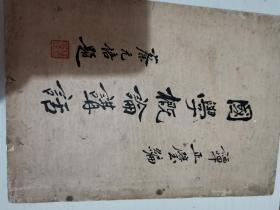 國學概論講話
譚正璧編
蔡元培題